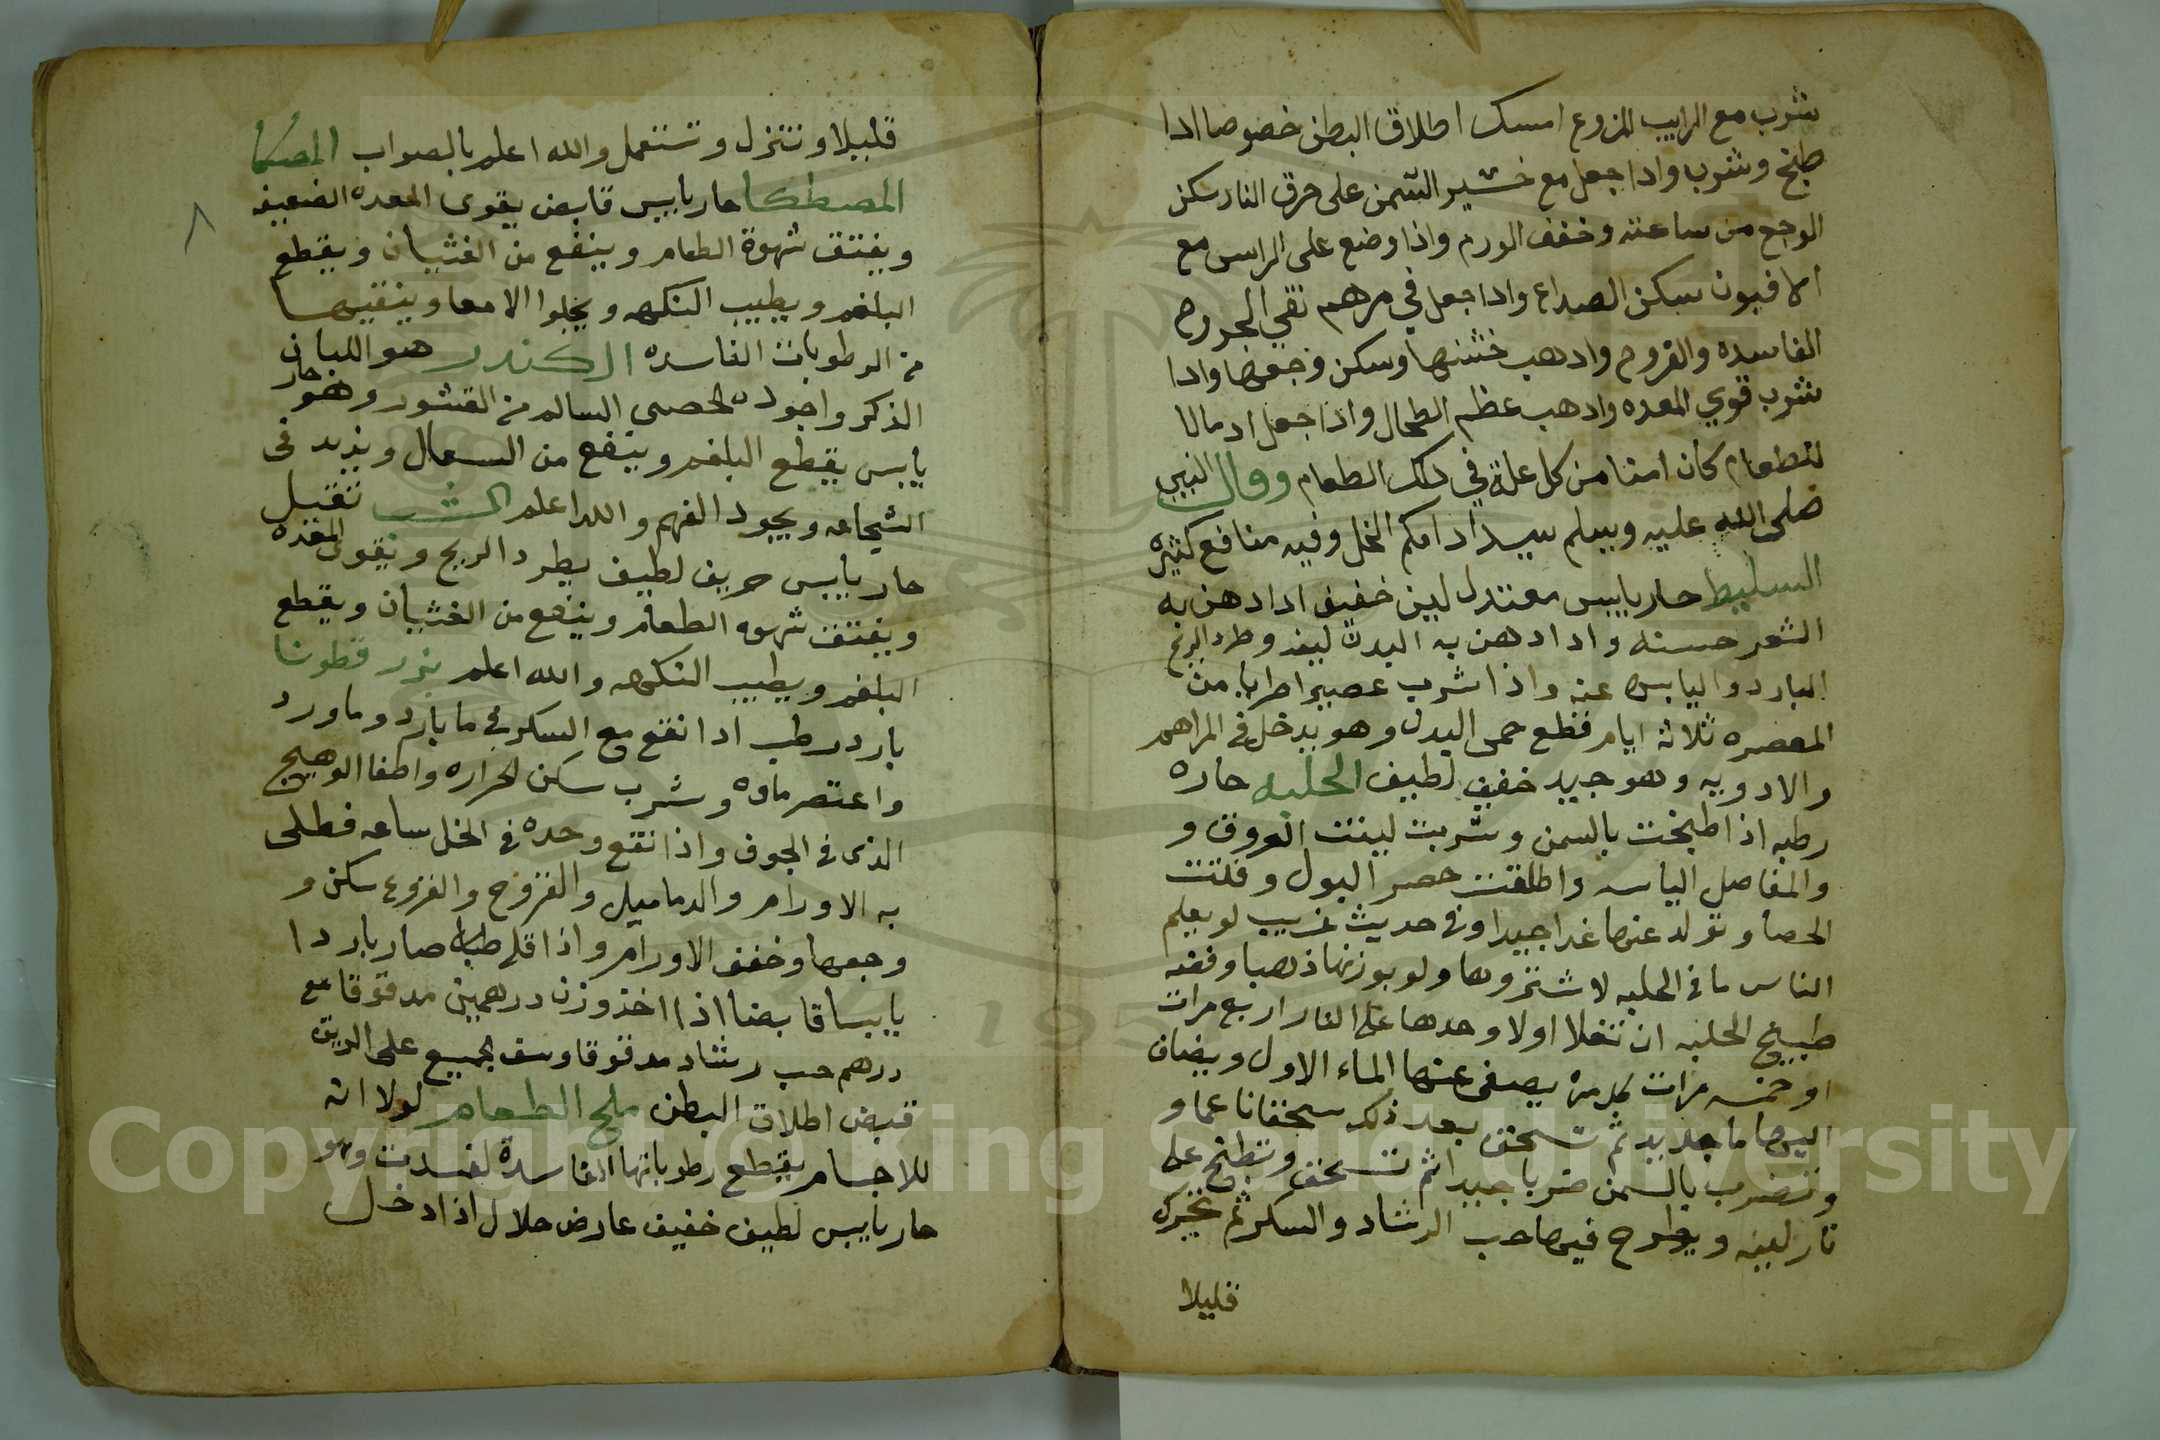 شرب مع الرايب المزوع امسك اطلاق البطن خصوصا اذا
طبخ وشرب واذا جعل مع خثير السمن على حرق النار سكن
الوجع من ساعته وخفف الورم واذا وضع على الراس مع
الافيون سكن الصداع واذا جعل في مرهم نقي الجروح
الفاسده والقروح واذهب خشنها وسكن وجعها واذا
شرب قوي المعده واذهب عظم الطحال واذا جعل اداما لا
للطعام كان امنا من كل علة في ذلك الطعام وقال النبي
صلى الله عليه وسلم سيد ادامكم الخل وفيه منافع كثيره
السليط حار يابس معتدل لين خفيف اذا دهن به
الشعر حسنه واذا دهن به البدن لينه وطرد الريح
البارد واليابس عنه واذا شرب عصيرا طريا من
المعصره ثلاثة ايام قطع حمى البدن وهو يدخل في المراهم
والادويه وهو جيد خفيف لطيف الحلبه حاره
رطبه اذا طبخت بالسمن وشربت لينت العروق و
والمفاصل اليابسه واطلقت حصر البول وفتت
الحصا وتولد عنها غدا جيدا وفي حديث غريب لو يعلم
الناس ما في الحلبه لاشتروها ولو بوزنها ذهبا وفقه
طبيخ الحلبه ان تغلا اولا وحدها على النار اربع مرات
او خمسه مرات كل مرة يصفى عنها الماء الاول ويضاف
اليها ما جديد ثم تسحق بعد ذلك سحقا ناعما و
وتضرب بالسمن ضربا جيدا ثم تسحق وتطبخ على
نار لينه ويطرح فيها حب الرشاد والسكر ثم تحرك
قليلا
قليلا وتنزل وتستعمل والله اعلم بالصواب المصطكا
٨
المصطكا حار يابس قابض يقوى المعده الضعيفه
ويفتق شهوة الطعام وينفع من الغثيان ويقطع
البلغم ويطيب النكهه ويجلوا الامعا وينقيها
من الرطوبات الفاسده الكندر هو اللبان
الذكر واجوده الحصى السالم من القشور وهو حار
يابس يقطع البلغم وينفع من السعال ويزيد في
الشجاعه ويجود الفهم والله اعلم الشب تقيل
حار يابس حريف لطيف يطرد الريح ويقوى المعده
ويفتق شهوه الطعام وينفع من الغثيان ويقطع
البلغم ويطيب النكهه والله اعلم بزر قطونا
بارد رطب اذا نقع مع السكر في ما بارد وما ورد
واعتصر ماؤه وشرب سكن الحراره واطفا الوهيج
الذى في الجوف واذا نقع وحده في الخل ساعه فطلى
به الاورام والدماميل والقروح والقروع سكن و
وجعها وخفف الاورام واذا قلي طبا صار باردا
يابسا قابضا اذا اخذ وزن درهمين مدقوقا مع
درهم حب رشاد مدقوقا وسف الجميع على الريق
قبض اطلاق البطن ملح الطعام لولا انه
للاجسام يقطع رطوباتها الفاسدة لفسدت وهو
حار يابس لطيف خفيف عارض حلال اذا دخل
Copyright © King Saud University
195